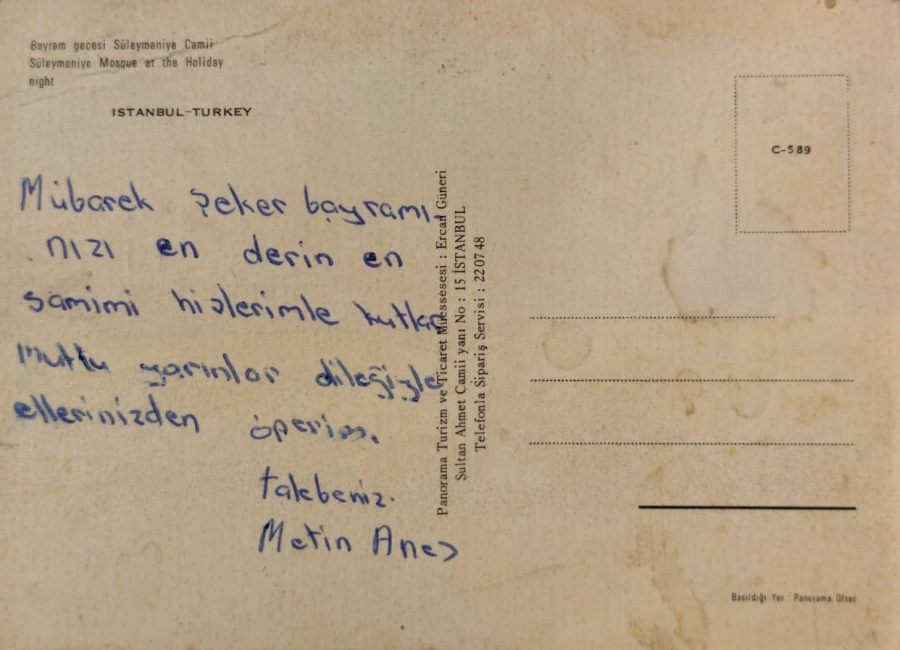 Bayram gecesi Süleymaniye Camii
Süleymaniye Mosque at the Holiday
night
ISTANBUL-TURKEY
C-589
Mübarek Şeker bayramı-
nızı en derin en
samimi hislerimle kutlar
mutlu yarınlar dileğiyle
ellerinizden öperim.
talebeniz.
Metin
Panorama Turizm ve Ticaret Müessesesi : Ercan Güneri
Sultan Ahmet Camii yanı No : 15 İSTANBUL
Telefonla Sipariş Servisi : 22 07 48
Basıldığı Yer : Panorama Ofset